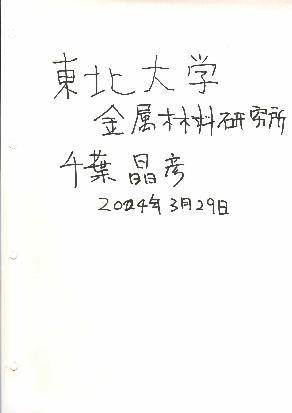 東北大学
金属材料研究所
千葉 晶彦
2024年3月29日